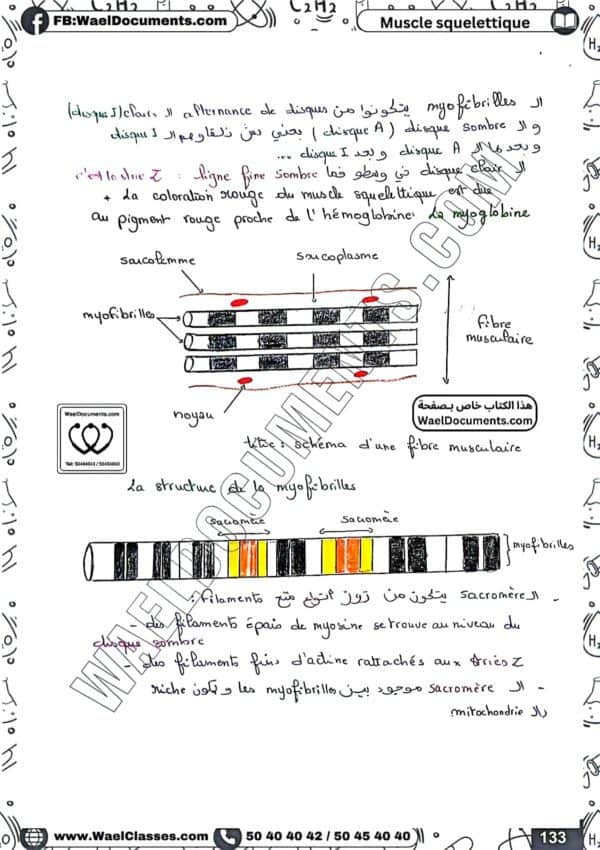 FB:WaelDocuments.com
Muscle squelettique
الـ myofibrilles يتكونوا من alternance de disques الـ clairs (disque I)
و الـ disque sombre (disque A) يعني بين نلقاوهم الـ disque I
و بعدها الـ disque A و بعد disque I ...
الـ disque clair في وسطو فما ligne fine sombre : c'est la strie Z
+ La coloration rouge du muscle squelettique est due
au pigment rouge proche de l'hémoglobine: La myoglobine
sarcolemme
sarcoplasme
myofibrilles
fibre
musculaire
noyau
هذا الكتاب خاص بصفحة
WaelDocuments.com
WaelDocuments.com
Tel: 50404042 / 50454040
titre: schéma d'une fibre musculaire
La structure de la myofibrilles
sacromère
sacromère
myofibrilles
- الـ sacromère يتكون من زوز أنواع متع filaments :
- des filaments épais de myosine se trouve au niveau du
disque sombre
- des filaments fins d'actine rattachés aux stries Z
- الـ sacromère موجود بين les myofibrilles و يكون riche
بالـ mitochondrie
WAELDOCUMENTS.COM
www.WaelClasses.com
50 40 40 42 / 50 45 40 40
133